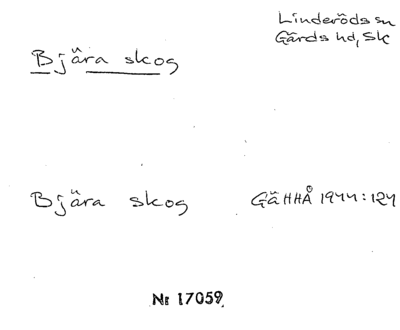 Linderöds sn
Gärds hd, Sk
Bjära skog
Bjära skog GäHHÅ 1944:124
Nr 17059